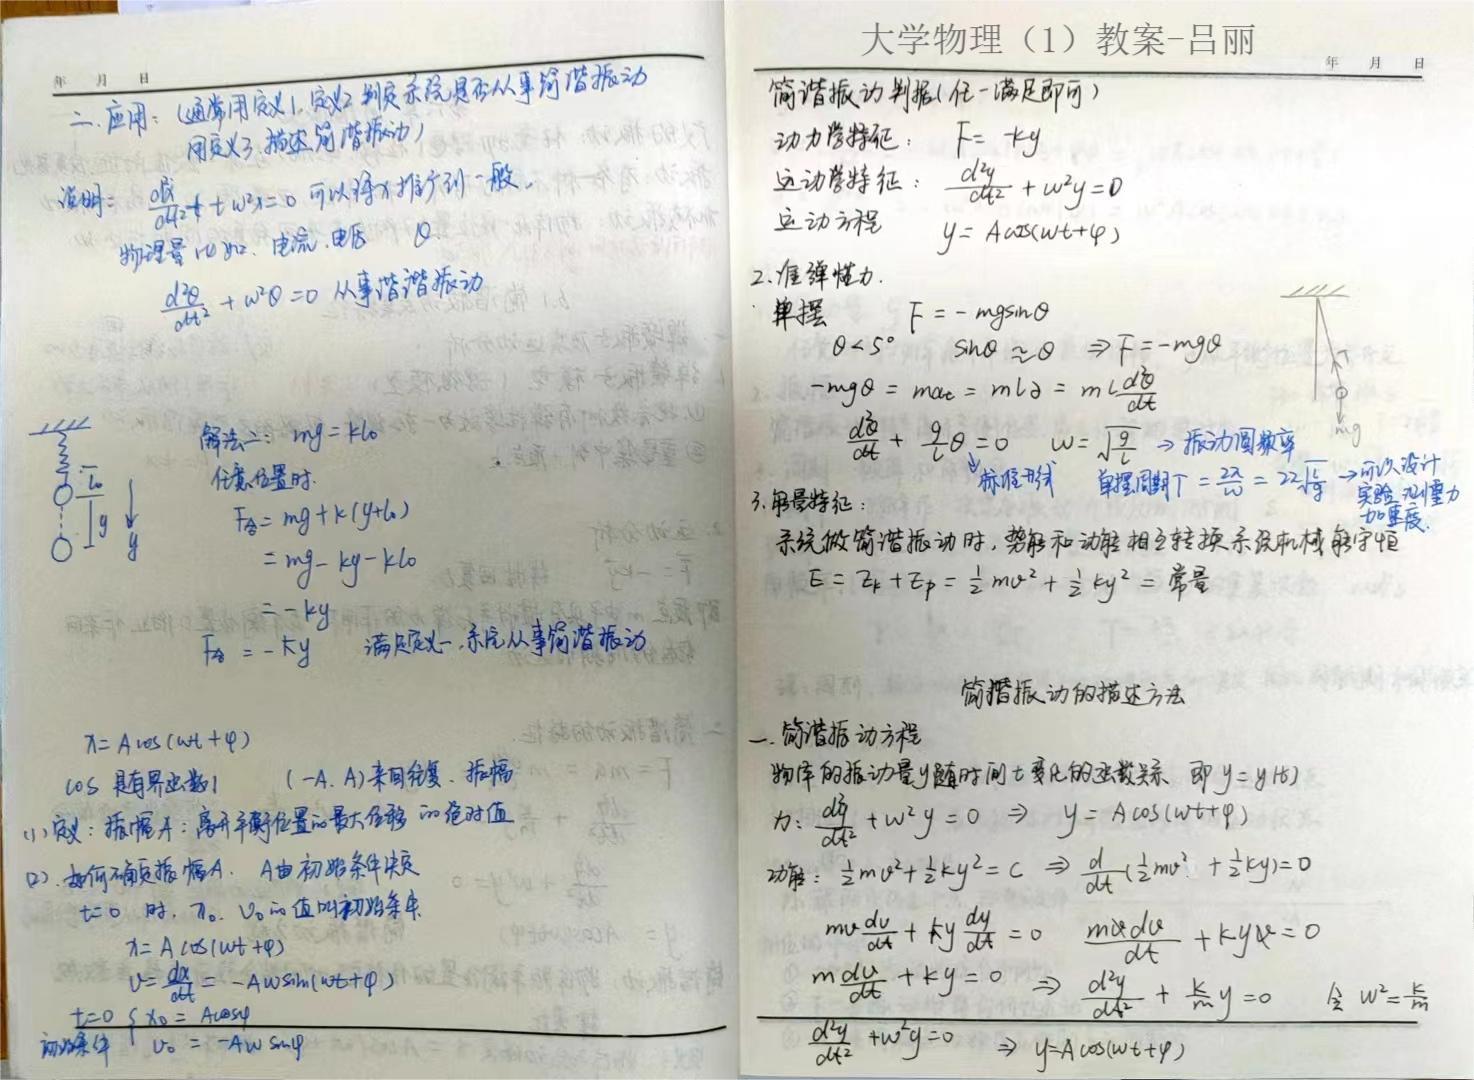 年 月 日
二.应用:(通常用定义1.定义2判定系统是否从事简谐振动
用定义3描述简谐振动)
说明: d²x/dt² + w²x=0 可以将x推广到一般.
物理量 比如:电流.电压 θ
d²θ/dt² + w²θ=0 从事谐谐振动
解法二: mg=kl₀
任意位置时.
l₀
y
y
F合=mg+k(y+l₀)
=mg-ky-kl₀
=-ky
F合=-ky 满足定义一.系统从事简谐振动
x=Acos(wt+φ)
cos是有界函数 (-A.A)来回往复.振幅
(1)定义:振幅A:离开平衡位置的最大位移的绝对值
(2).如何确定振幅A. A由初始条件决定
t=0 时. x₀. v₀的值叫初始条件
x=Acos(wt+φ)
v=dx/dt=-Awsin(wt+φ)
t=0 { x₀=Acosφ
初始条件 v₀=-Awsinφ
大学物理（1）教案-吕丽
年 月 日
简谐振动判据(任一满足即可)
动力学特征: F=-ky
运动学特征: d²y/dt²+w²y=0
运动方程 y=Acos(wt+φ)
2.准弹性力.
单摆 F=-mgsinθ
θ<5° sinθ≈θ ⇒F=-mgθ
-mgθ=maₜ=mlα=ml d²θ/dt
mg
d²θ/dt+g/lθ=0 w=√g/l →振动圆频率
↘标准形式 单摆周期T=2π/w=2π√l/g →可以设计
实验测重力
加速度.
3.能量特征:
系统做简谐振动时,势能和动能相互转换系统机械能守恒
E=Ek+Ep=½mv²+½ky²=常量
简谐振动的描述方法
一.简谐振动方程
物体的振动量y随时间t变化的函数关系.即y=y(t)
力: d²y/dt²+w²y=0 ⇒ y=Acos(wt+φ)
功能: ½mv²+½ky²=C ⇒ d/dt(½mv²+½ky)=0
mv dv/dt+ky dy/dt=0 mvdv/dt+kyv=0
m dv/dt+ky=0 ⇒ d²y/dt²+k/m y=0 令w²=k/m
d²y/dt²+w²y=0 ⇒ y=Acos(wt+φ)